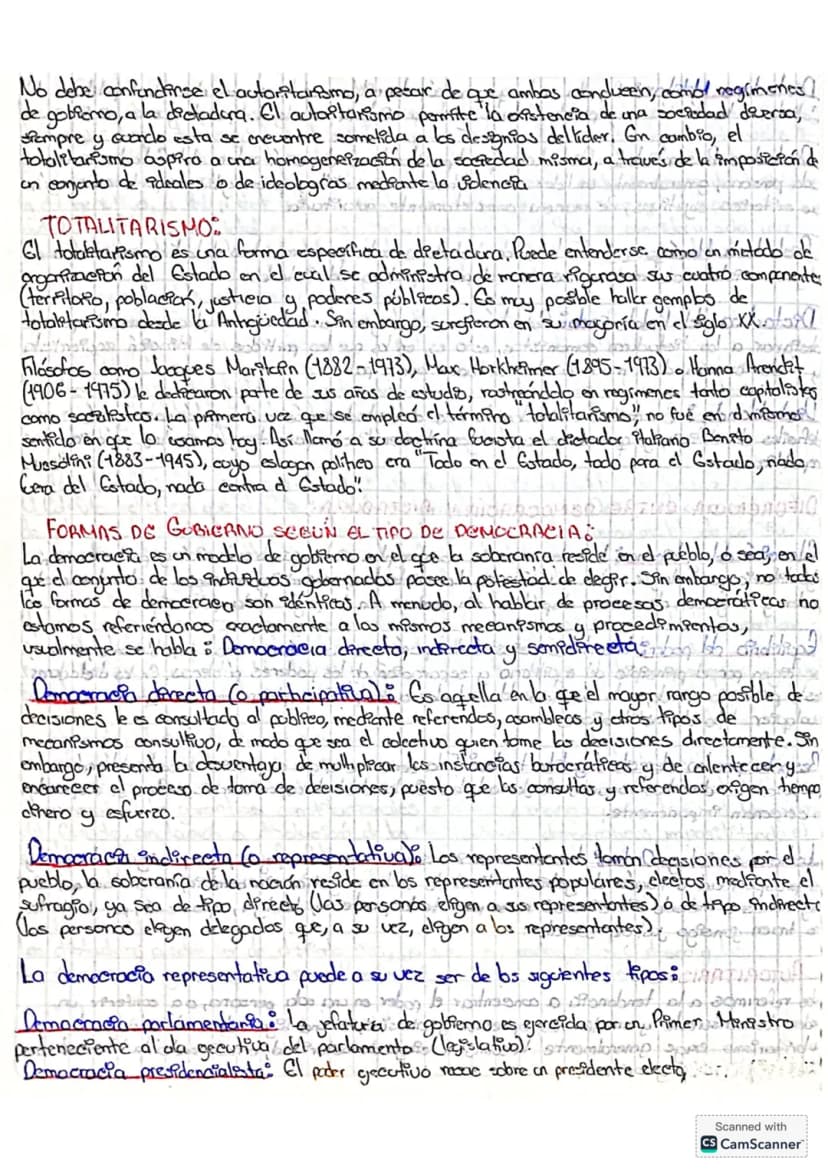 No debe confundirse el autoritarismo, a pesar de que ambas conducen, como regímenes
de gobierno, a la dictadura. El autoritarismo permite la existencia de una sociedad diversa,
siempre y cuando esta se encuentre sometida a los designios del líder. En cambio, el
totalitarismo aspira a una homogeneización de la sociedad misma, a través de la imposición de
un conjunto de ideales o de ideologías mediante la violencia
TOTALITARISMO:
El totalitarismo es una forma específica de dictadura. Puede entenderse como un método de
organización del Estado en el cual se administra de manera rigurosa sus cuatro componentes
(territorio, población, justicia y poderes públicos). Es muy posible hallar ejemplos de
totalitarismo desde la Antigüedad. Sin embargo, surgieron en su mayoría en el siglo XX
Filósofos como Jacques Maritain (1882-1973), Max Horkheimer (1895-1973) o Hanna Arendit
(1906-1975) le dedicaron parte de sus años de estudio, rastreándolo en regímenes tanto capitalistas
como socialistas. La primera vez que se empleó el término "totalitarismo", no fue en el mismo
sentido en que lo usamos hoy. Así llamó a su doctrina fascista el dictador italiano Benito
Mussolini (1883-1945), cuyo eslogan político era "Todo en el Estado, todo para el Estado, nada
fuera del Estado, nada contra el Estado".
FORMAS DE GOBIERNO SEGÚN EL TIPO DE DEMOCRACIA:
La democracia es un modelo de gobierno en el que la soberanía reside en el pueblo, o sea, en el
que el conjunto de los individuos gobernados posee la potestad de elegir. Sin embargo, no todas
las formas de democracia son idénticas. A menudo, al hablar de procesos democráticas no
estamos refiriéndonos exactamente a los mismos mecanismos y procedimientos,
usualmente se habla: Democracia directa, indirecta y semidirecta
Democracia directa (o participativa): Es aquella en la que el mayor rango posible de
decisiones le es consultado al público, mediante referendos, asambleas y otros tipos de
mecanismos consultivo, de modo que sea el colectivo quien tome las decisiones directamente. Sin
embargo, presenta la desventaja de multiplicar las instancias burocráticas y de enlentecer y
encarecer el proceso de toma de decisiones, puesto que las consultas y referendos, exigen tiempo
dinero y esfuerzo.
Democracia indirecta (o representativa): Los representantes toman decisiones por el
pueblo, la soberanía de la nación reside en los representantes populares, electos mediante el
sufragio, ya sea de tipo directo (las personas eligen a sus representantes) o de tipo indirecto
(las personas eligen delegados que, a su vez, eligen a los representantes).
La democracia representativa puede a su vez ser de los siguientes tipos:
Democracia parlamentaria: La jefatura de gobierno es ejercida por un Primer Ministro
perteneciente al ala ejecutiva del parlamento (legislativo).
Democracia presidencialista: El poder ejecutivo recae sobre un presidente electo,
Scanned with
CS CamScanner